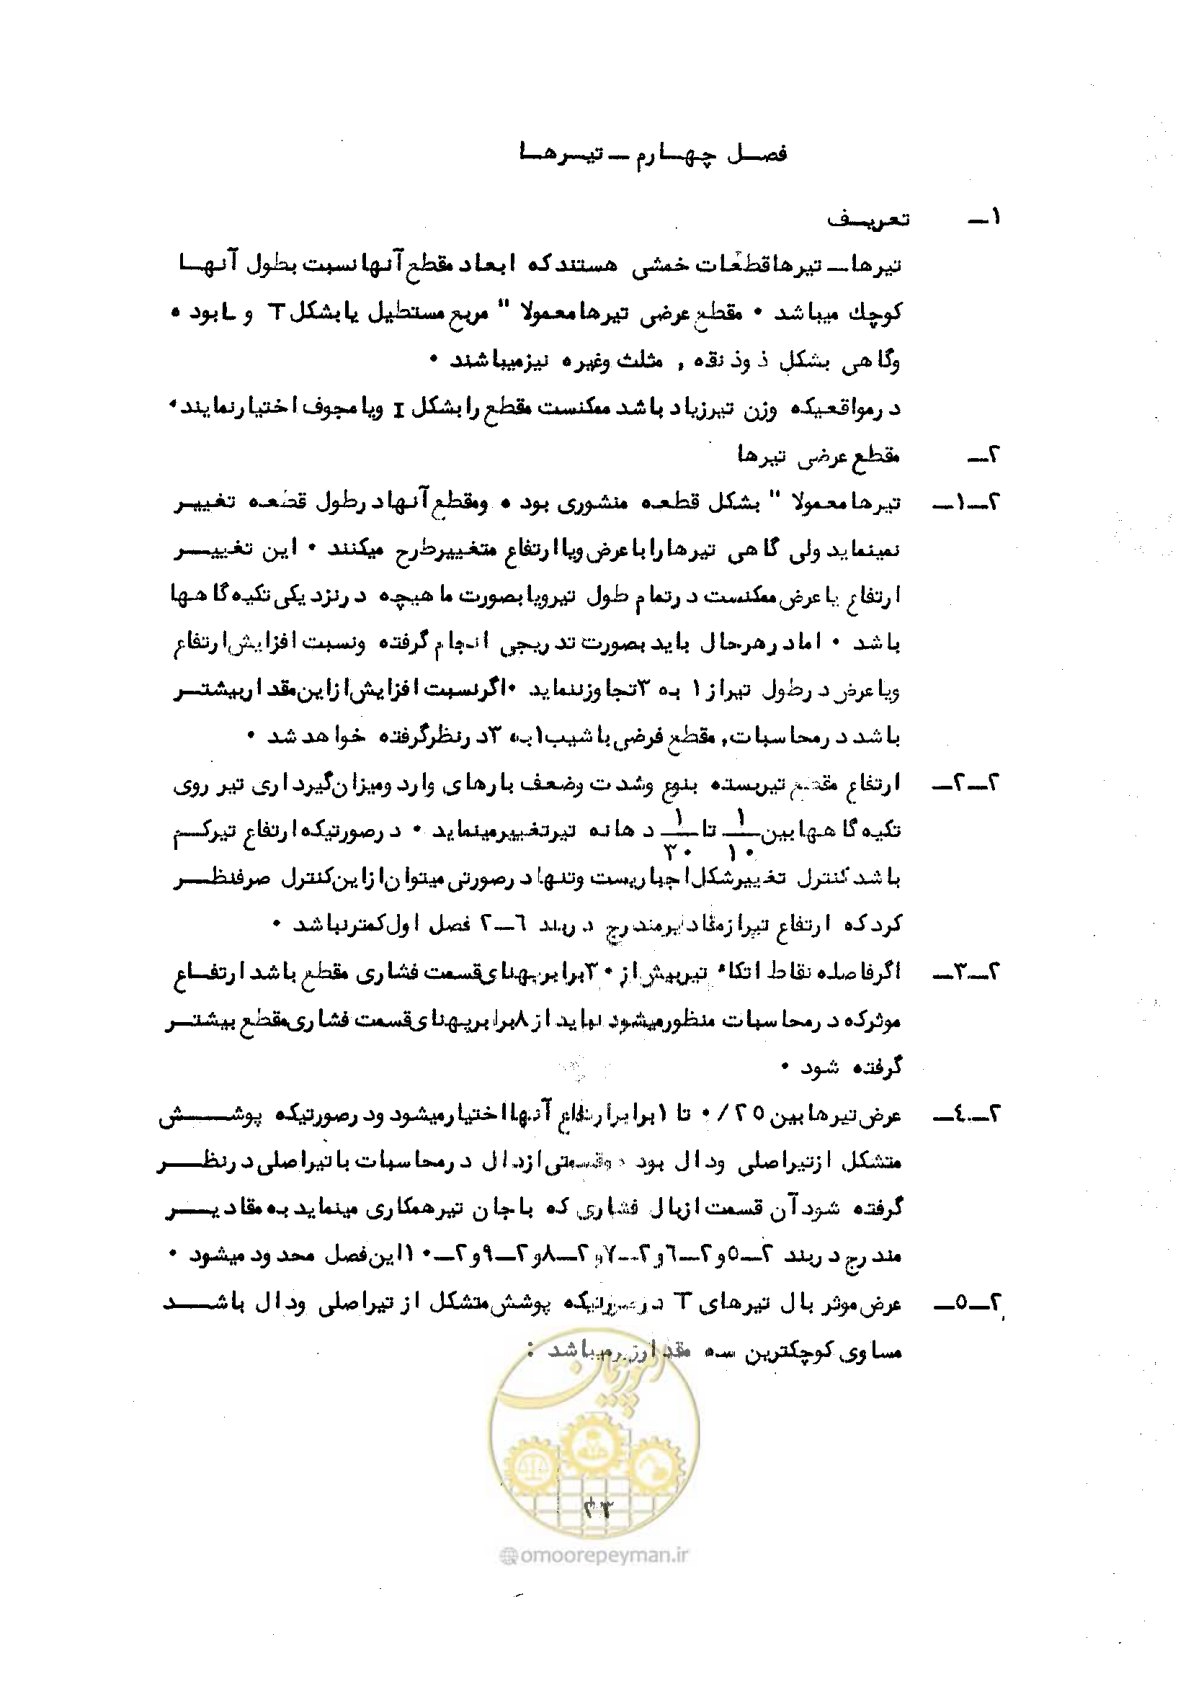 فصل چهارم ــ تیرها
۱ــ تعریف
تیرها ــ تیرها قطعات خمشی هستند که ابعاد مقطع آنها نسبت بطول آنها
کوچک میباشد ۰ مقطع عرضی تیرها معمولا" مربع مستطیل یا بشکل T و L بوده
و گاهی بشکل ذوذنقه , مثلث وغیره نیز میباشند ۰
در مواقعیکه وزن تیر زیاد باشد ممکنست مقطع را بشکل I ویا مجوف اختیار نمایند ۰
۲ــ مقطع عرضی تیرها
۲ــ۱ــ تیرها معمولا" بشکل قطعه منشوری بوده و مقطع آنها در طول قطعه تغییر
نمینماید ولی گاهی تیرها را با عرض ویا ارتفاع متغییر طرح میکنند ۰ این تغییر
ارتفاع یا عرض ممکنست در تمام طول تیر ویا بصورت ماهیچه در نزدیکی تکیه گاهها
باشد ۰ اما در هر حال باید بصورت تدریجی انجام گرفته ونسبت افزایش ارتفاع
ویا عرض در طول تیر از ۱ به ۳ تجاوز ننماید ۰ اگر نسبت افزایش از این مقدار بیشتر
باشد در محاسبات, مقطع فرضی با شیب ۱ به ۳ در نظر گرفته خواهد شد ۰
۲ــ۲ــ ارتفاع مقطع تیر بسته بنوع وشدت وضعف بارهای وارد ومیزان گیرداری تیر روی
تکیه گاهها بین ۱/۱۰ تا ۱/۳۰ دهانه تیر تغییر مینماید ۰ در صورتیکه ارتفاع تیر کم
باشد کنترل تغییر شکل اجباریست وتنها در صورتی میتوان از این کنترل صرفنظر
کرد که ارتفاع تیر از مقادیر مندرج در بند ۶ــ۲ فصل اول کمتر نباشد ۰
۲ــ۳ــ اگر فاصله نقاط اتکاء تیر بیش از ۳۰ برابر پهنای قسمت فشاری مقطع باشد ارتفاع
موثر که در محاسبات منظور میشود نباید از ۸ برابر پهنای قسمت فشاری مقطع بیشتر
گرفته شود ۰
۲ــ۴ــ عرض تیرها بین ۰/۲۵ تا ۱ برابر ارتفاع آنها اختیار میشود ودر صورتیکه پوشش
متشکل از تیر اصلی ودال بوده وقسمتی از دال در محاسبات با تیر اصلی در نظر
گرفته شود آن قسمت از بال فشاری که با جان تیر همکاری مینماید به مقادیر
مندرج در بند ۲ــ۵ و ۲ــ۶ و ۲ــ۷ و ۲ــ۸ و ۲ــ۹ و ۲ــ۱۰ این فصل محدود میشود ۰
۲ــ۵ــ عرض موثر بال تیرهای T در صورتیکه پوشش متشکل از تیر اصلی ودال باشد
مساوی کوچکترین سه مقدار زیر میباشد :
امور پیمان
@omoorepeyman.ir